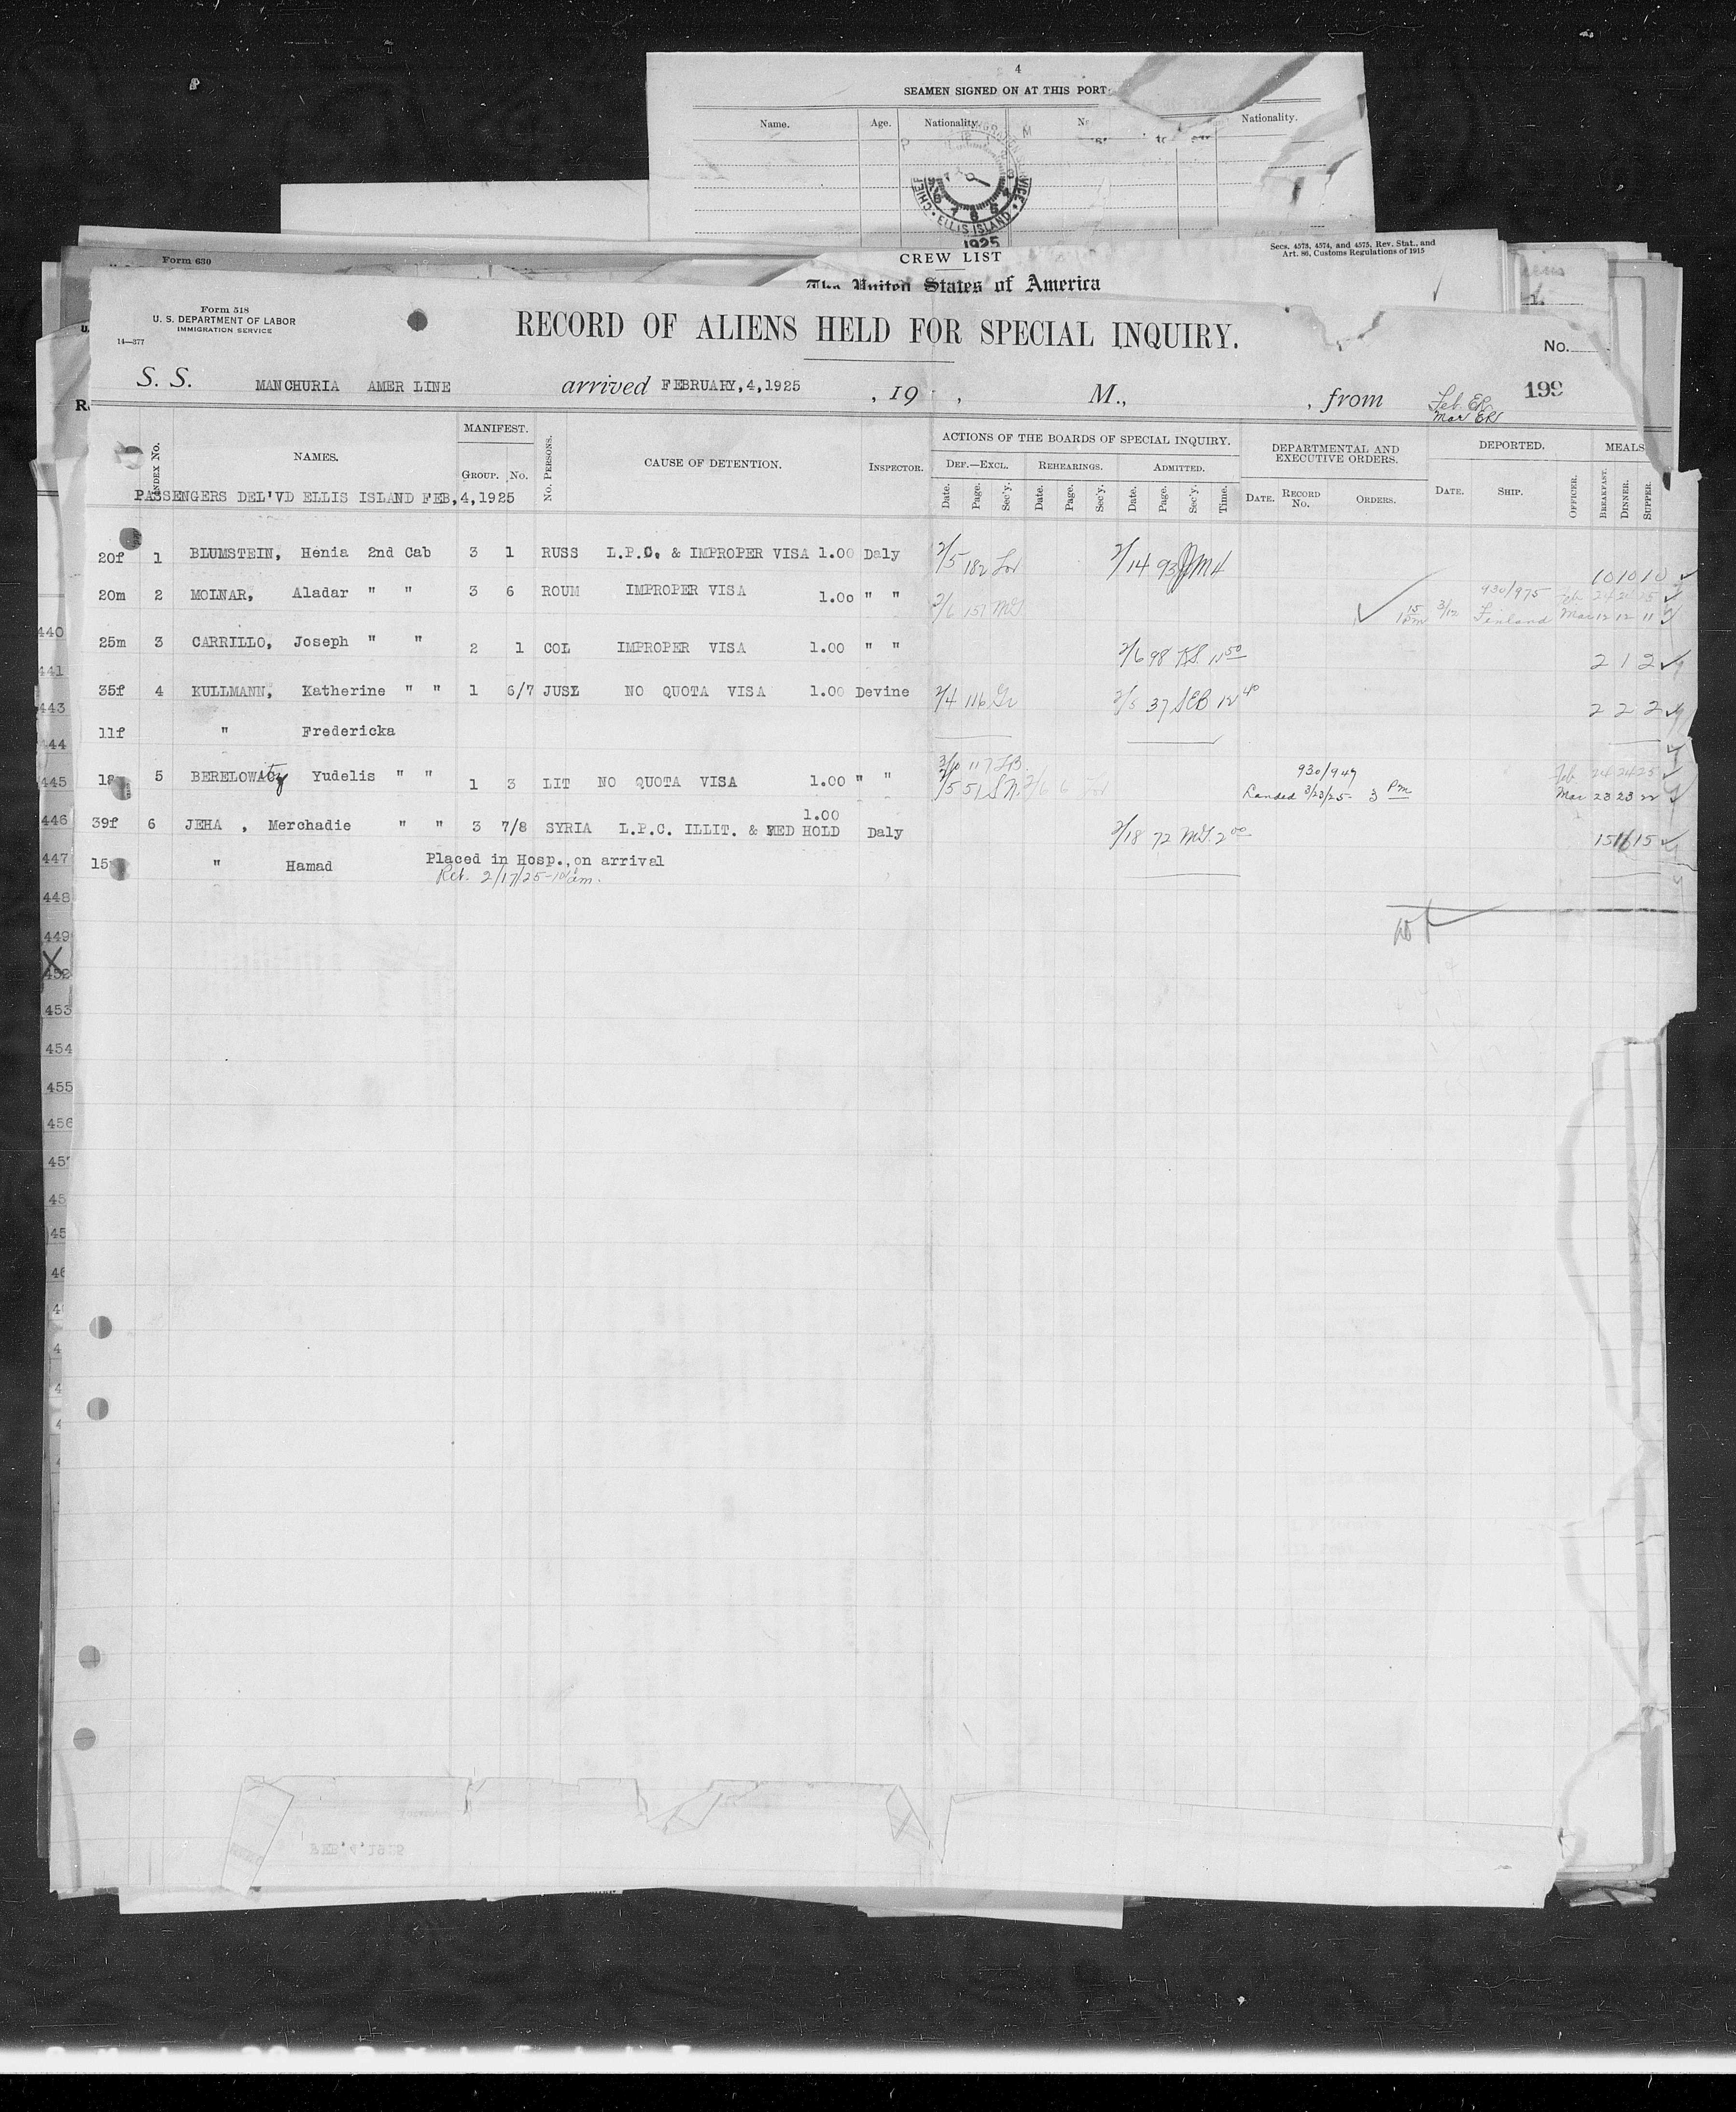 4
SEAMEN SIGNED ON AT THIS PORT
Name. Age. Nationality. Nationality.
CHIEF ELLIS ISLAND
1925
Form 630
CREW LIST
The United States of America
Secs. 4573, 4574, and 4575, Rev. Stat., and
Art. 86, Customs Regulations of 1915
Form 518
U. S. DEPARTMENT OF LABOR
IMMIGRATION SERVICE
14—377
RECORD OF ALIENS HELD FOR SPECIAL INQUIRY.
No.
199
S. S. MANCHURIA AMER LINE arrived FEBRUARY,4,1925 , 19 , M., , from
Feb. ER
Mar ER
INDEX No. NAMES. MANIFEST. GROUP. No. No. PERSONS. CAUSE OF DETENTION. INSPECTOR.
ACTIONS OF THE BOARDS OF SPECIAL INQUIRY.
DEF.—EXCL. REHEARINGS. ADMITTED.
Date. Page. Sec'y. Date. Page. Sec'y. Date. Page. Sec'y. Time.
DEPARTMENTAL AND
EXECUTIVE ORDERS.
DATE. RECORD No. ORDERS.
DEPORTED.
DATE. SHIP. OFFICER.
MEALS
BREAKFAST. DINNER. SUPPER.
PASSENGERS DEL'VD ELLIS ISLAND FEB,4,1925
20f 1 BLUMSTEIN, Henia 2nd Cab 3 1 RUSS L.P.C. & IMPROPER VISA 1.00 Daly 2/5 182 2/14 93 10 10 10
20m 2 MOLNAR, Aladar " " 3 6 ROUM IMPROPER VISA 1.00 " " 2/6 157 3/12 930/975 Finland Feb 24 24 25
Mar 12 12 11
25m 3 CARRILLO, Joseph " " 2 1 COL IMPROPER VISA 1.00 " " 2/6 98 11 50 2 1 2
35f 4 KULLMANN, Katherine " " 1 6/7 JUSL NO QUOTA VISA 1.00 Devine 2/4 116 Gr 2/5 37 SEB 12 40 2 2 2
11f " Fredericka
5 BERELOWITZ Yudelis " " 1 3 LIT NO QUOTA VISA 1.00 " " 2/5 51 2/6 6 930/947 Feb 24 24 25
Landed 3/23/25- 3 PM Mar 23 23 22
39f 6 JEHA , Merchadie " " 3 7/8 SYRIA L.P.C. ILLIT. & MED HOLD 1.00 Daly 2/18 72 2 00 15 16 15
15 " Hamad Placed in Hosp.,on arrival
Ret. 2/17/25-10 am.
440
441
443
444
445
446
447
448
449
452
453
454
455
456